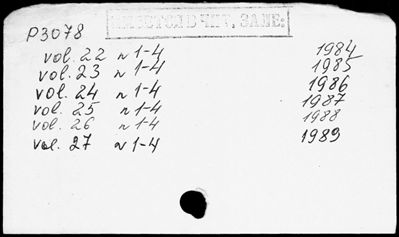 ИМЕЕТСЯ В ЧИТ. ЗАЛЕ:
P3078
vol. 22 n 1-4 1984
vol. 23 n 1-4 1985
vol. 24 n 1-4 1986
vol. 25 n 1-4 1987
vol. 26 n 1-4 1988
vol. 27 n 1-4 1989